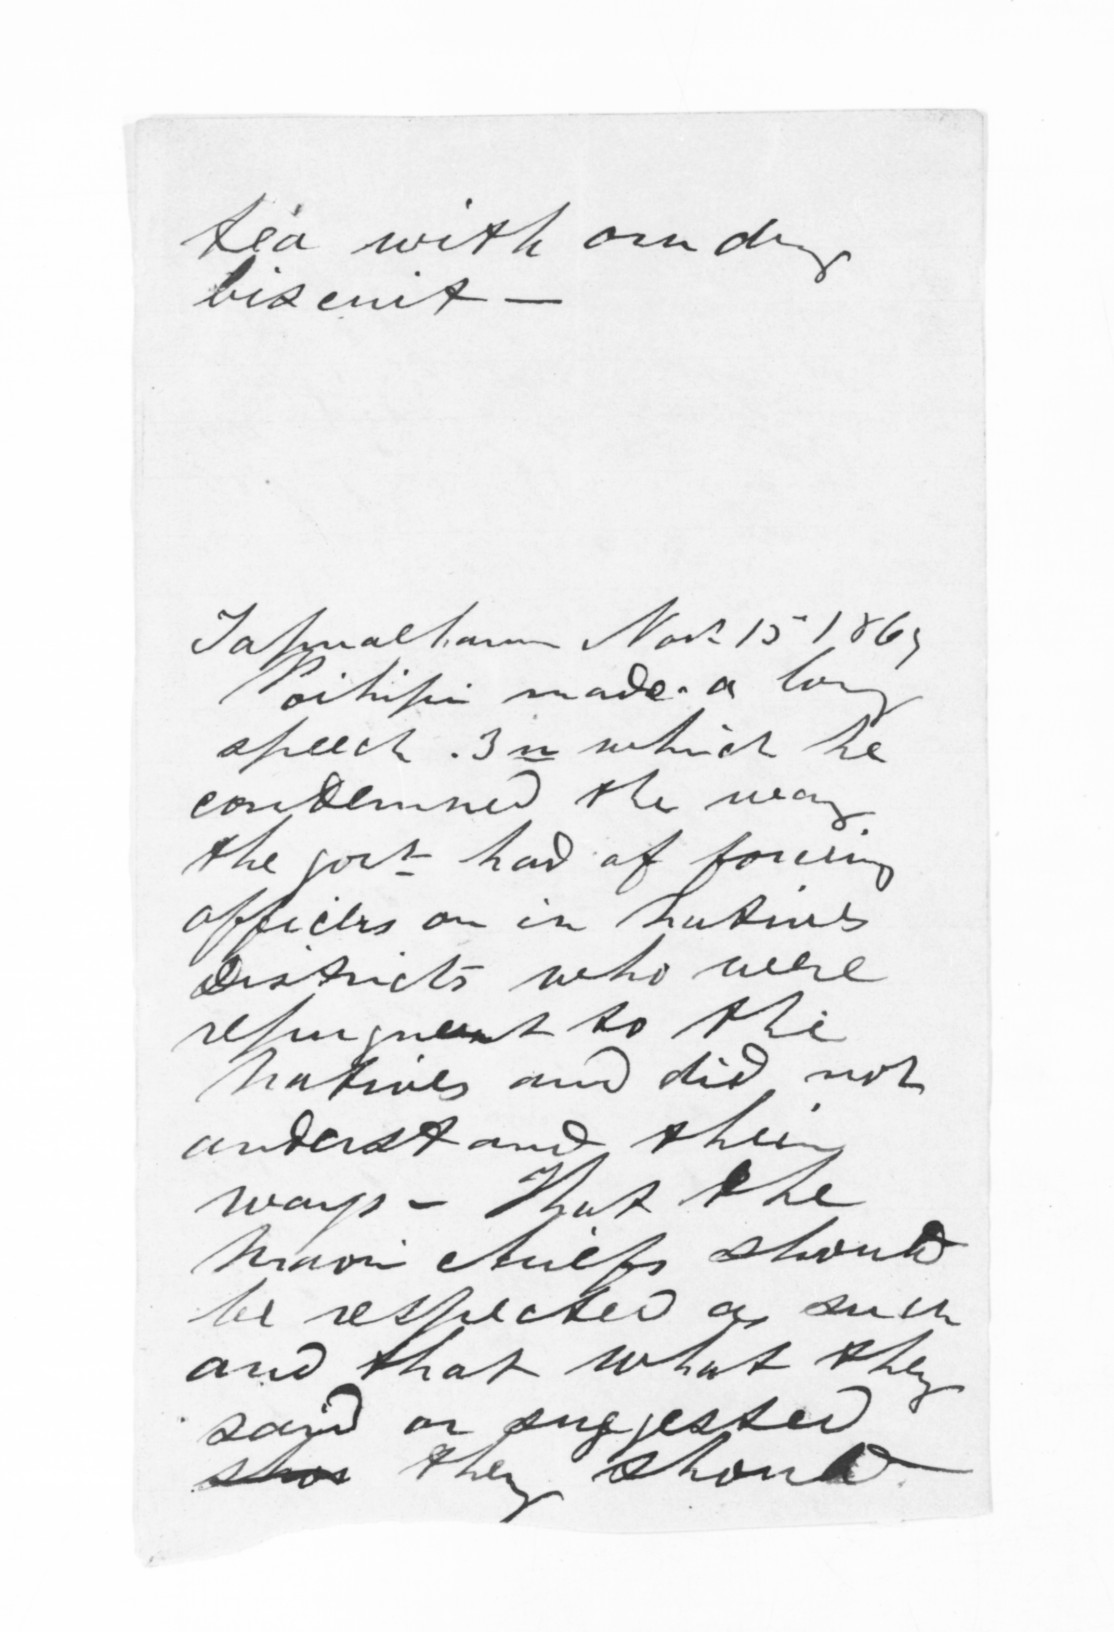 tea with our dry
biscuit —
Tapuaeharuru Novr 15 1869
Poihipi made a long
speech . In which he
condemned the way
the govt had of forcing
officers on in natives
districts who were
repugnent to the
natives and did not
understand their
ways – That the
maori chiefs should
be respected as such
and that what they
said or suggested
shos they should